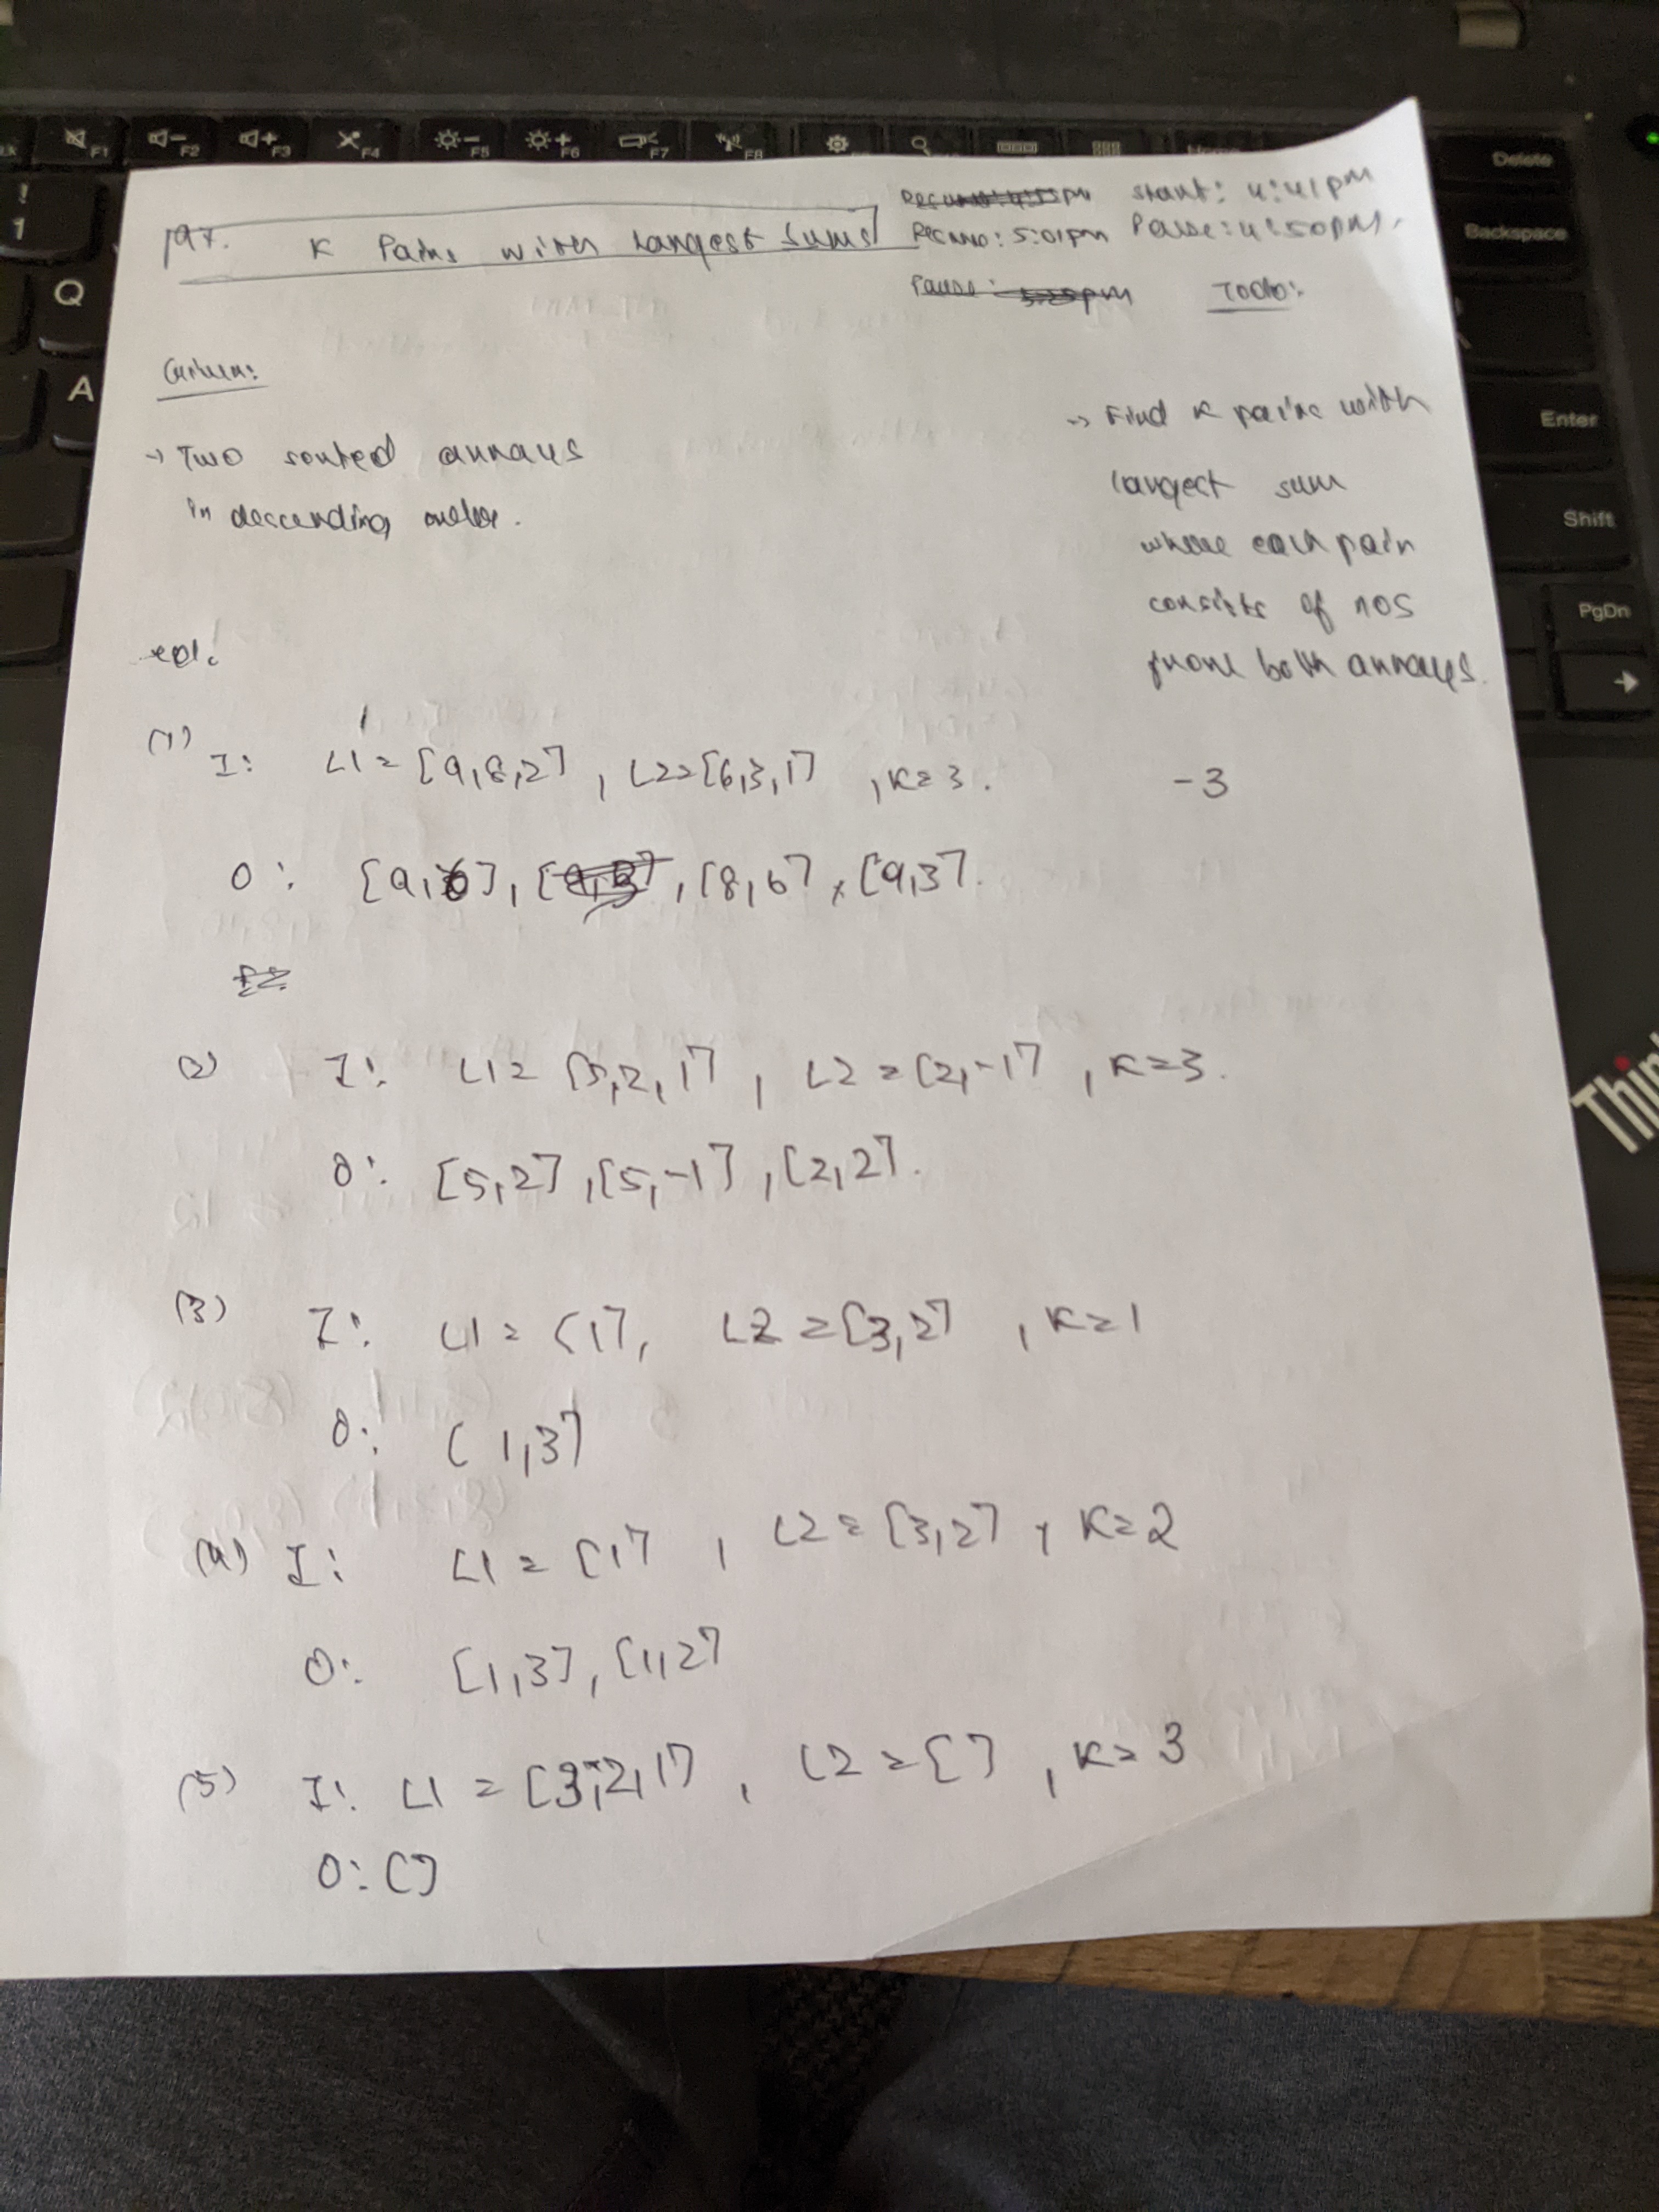 F1 F2 F3 F4 F5 F6 F7 F8 Delete
! 1 Backspace
Q
A
Enter
Shift
PgDn
Start: 4:41pm
197. K Pairs with Largest Sums
Resume: 5:01pm Pause: 4:50pm.
Pause: Todo:
Given:
→ Two sorted arrays
in descending order.
→ Find K pairs with
largest sum
where each pair
consists of nos
from both arrays.
(1) I: L1 = [9,8,2], L2=[6,3,1], K=3.
-3
O: [9,6], [8,6], [9,3].
(2) I: L1= [5,2,1], L2=[2,-1], K=3.
O: [5,2], [5,-1], [2,2].
(3) I: L1= [1], L2=[3,2], K=1
O: [1,3]
(4) I: L1= [1], L2= [3,2], K=2
O: [1,3], [1,2]
(5) I: L1 = [3,2,1], L2=[], K=3
O: []
Thin